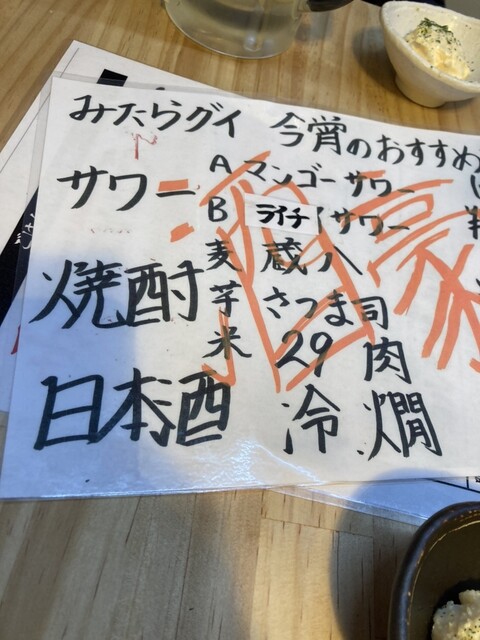 みたらグイ 今宵のおすすめ
サワー A マンゴーサワー
B ライチサワー
焼酎 麦 蔵八
芋 さつま司
米 29 肉
日本酒 冷 燗
酒豪